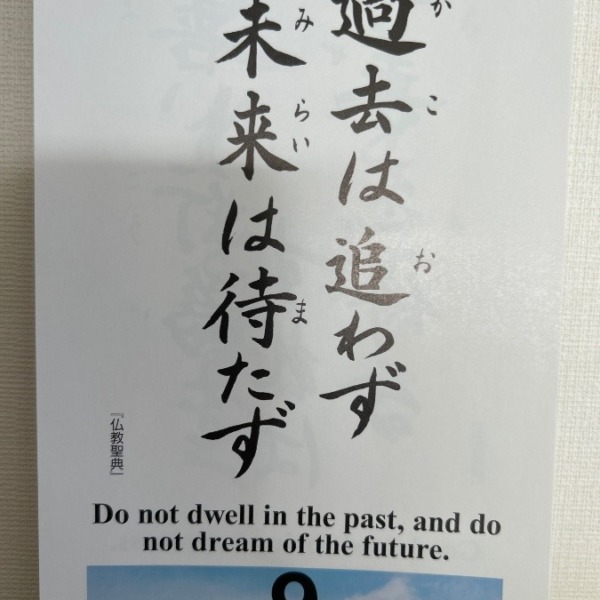 過去は追わず
かこ
お
未来は待たず
みらい
ま
『仏教聖典』
Do not dwell in the past, and do
not dream of the future.
9